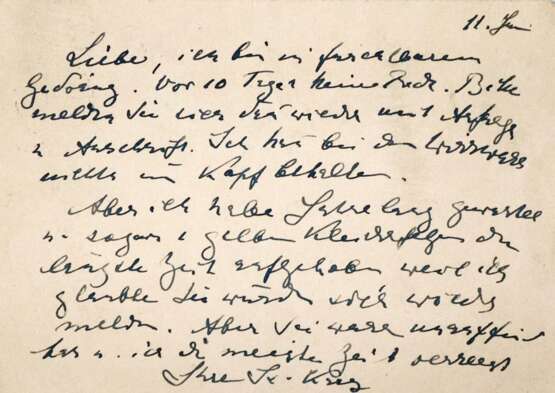 11. Jun
Liebe, ich bin in furchtbarem
Gedräng. Vor 10 Tagen keine Rede. Bitte
melden Sie sich dan wieder mit Anfrage
u Anschrift. Ich kan bei den Wirrwarr
nichts im Kopf behalten.
Aber ich habe Jahre lang gewartet
u. sogar 1 gelben Kleiderfetzen die
längste Zeit aufgehoben weil ich
glaubte Sie würden sich wieder
melden. Aber Sie waren unauffind
bar u. ich die meiste Zeit verreist
Ihre